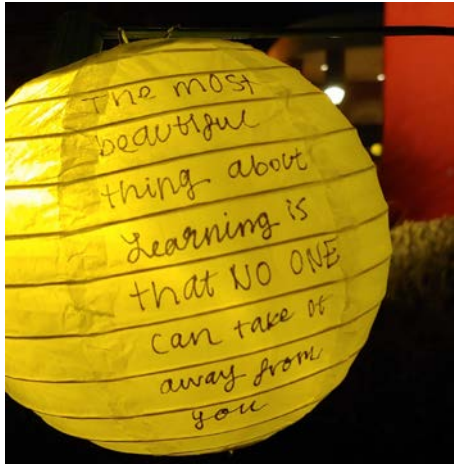 The most
beautiful
thing about
Learning is
that NO ONE
can take it
away from
you